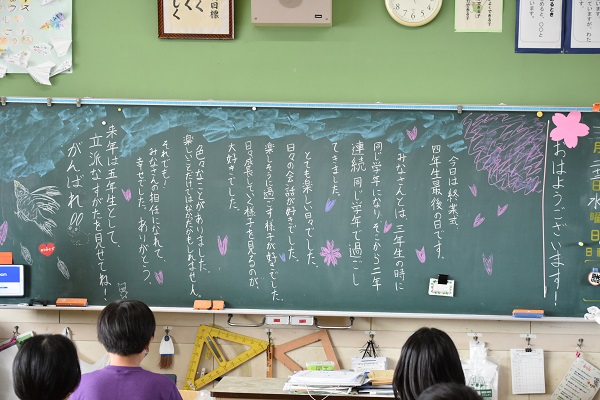 水
曜
日
おはようございます！
今日は終業式、
四年生最後の日です。
みなさんとは、三年生の時に
同じ学年になり、そこから二年
連続、同じ学年で過ごし
てきました。
とても楽しい日々でした。
日々の会話が好きでした。
楽しそうに過ごす様子が好きでした。
日々成長していく様子を見るのが、
大好きでした。
色々なことがありました。
楽しいことだけではなかったかもしれません。
それでも！
みなさんの担任になれて、
幸せでした。ありがとう。
来年は五年生として、
立派なすがたを見せてね！
がんばれ！